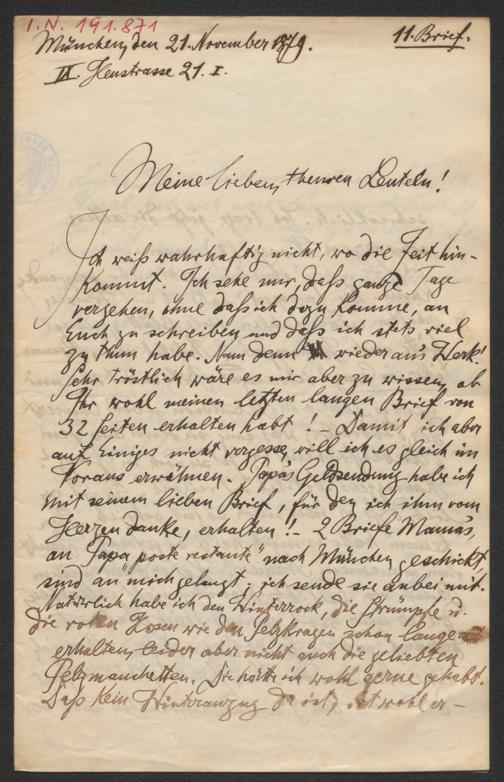 I.N. 191.871
München, den 21. November 1879.
11. Brief.
IX. Heustrasse 21. I.
Meine lieben, theuren Leuteln!
Ich weiß wahrhaftig nicht, wo die Zeit hin-
kommt. Ich sehe nur, daß ganze Tage
vergehen, ohne daß ich dazu komme, an
Euch zu schreiben und daß ich stets viel
zu thun habe. Nun denn wieder an's Werk!
Sehr tröstlich wäre es mir aber zu wissen, ob
Ihr wohl meinen letzten langen Brief von
32 Seiten erhalten habt! – Damit ich aber
auf Einiges nicht vergesse, will ich es gleich im
Voraus erwähnen. Papa's Geldsendung habe ich
mit seinem lieben Brief, für den ich ihm vom
Herzen danke, erhalten! – 2 Briefe Mama's,
an Papa „poste restante" nach München geschickt,
sind an mich gelangt; ich sende sie anbei mit.
Natürlich habe ich den Winterrock, die Strümpfe u.
die roten Hosen wie den Pelzkragen schon lange
erhalten, leider aber nicht auch die geliebten
Pelzmanchetten. Die hätte ich wohl gerne gehabt.
Daß kein Winteranzug da ist, ist wohl er-